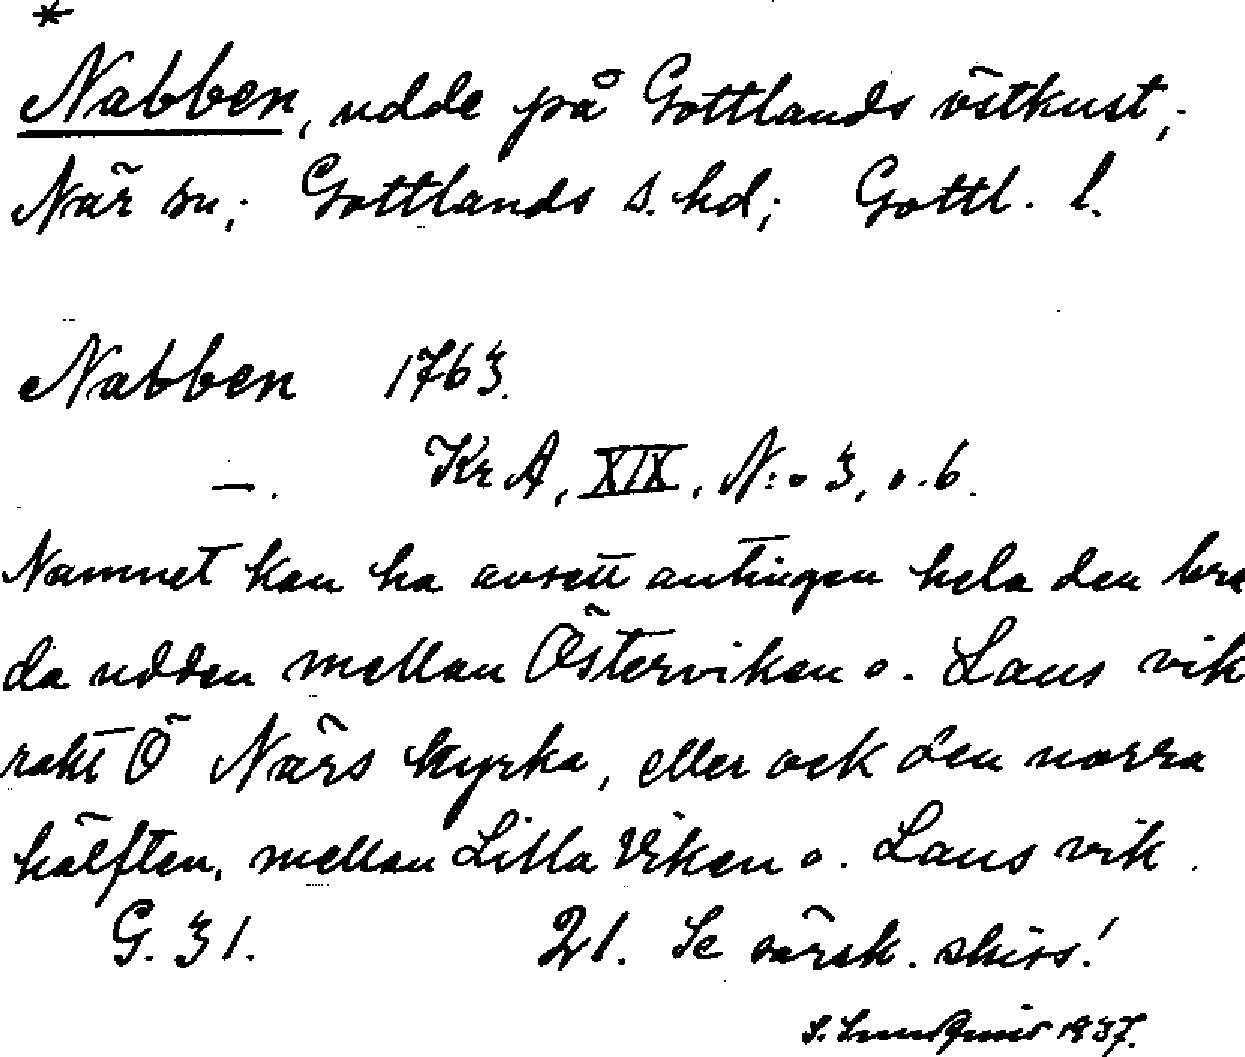 *
Nabben, udde på Gottlands östkust,
När sn; Gottlands s. hd; Gottl. l.
Nabben 1763.
—. Kr A, XIX, N:o 3, o. 6.
Namnet kan ha avsett antingen hela den bre
da udden mellan Österviken o. Laus vik
rakt Ö När s kyrka, eller ock den norra
hälften, mellan Lilla Viken o. Laus vik.
G. 31. 21. Se särsk. skiss!
1937.